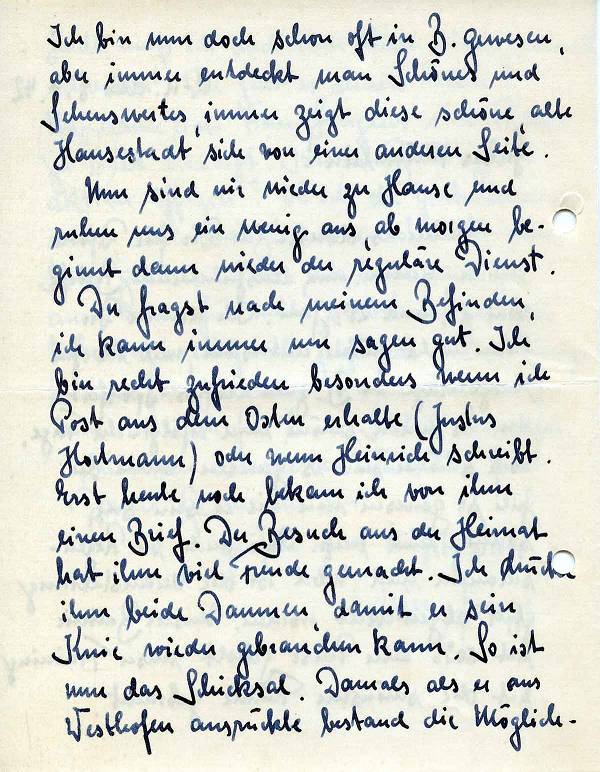 Ich bin nun doch schon oft in B. gewesen,
aber immer entdeckt man Schönes und
Sehenswertes, immer zeigt diese schöne, alte
Hansestadt sich von einer anderen Seite.
Nun sind wir wieder zu Hause und
ruhen uns ein wenig aus, ab morgen be-
ginnt dann wieder der reguläre Dienst.
Du fragst nach meinem Befinden,
ich kann immer nur sagen gut. Ich
bin recht zufrieden besonders wenn ich
Post aus dem Osten erhalte (Justus
Hochmann) oder wenn Heinrich schreibt.
Erst heute noch bekam ich von ihm
einen Brief. Der Besuch aus der Heimat
hat ihm viel Freude gemacht. Ich drücke
ihm beide Daumen, damit er sein
Knie wieder gebrauchen kann. So ist
nun das Schicksal. Damals als er aus
Westhofen ausrückte bestand die Möglich-